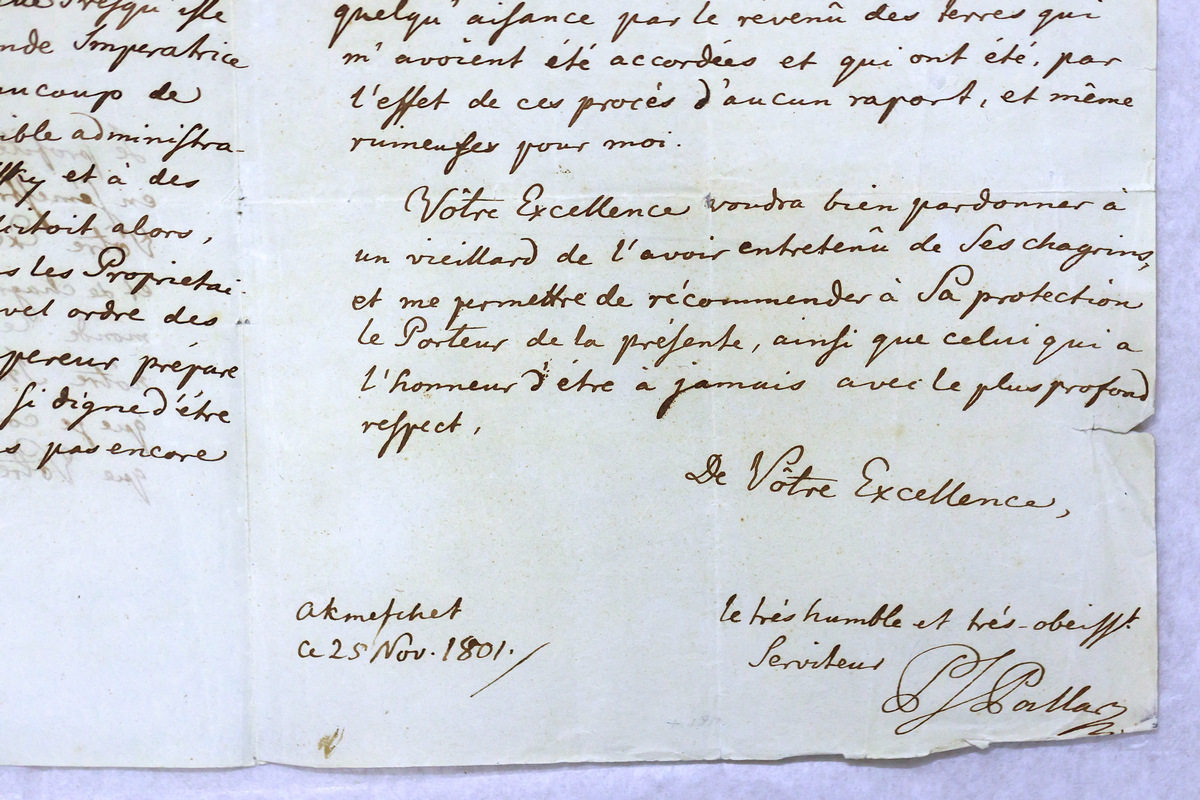 Presqu'isle
nde Imperatrice
aucoup de
ible administra-
ky et à des
licitoit alors,
s les Proprietai-
vel ordre des
pereur prépare
si digne d'étre
s pas encore
quelqu'aisance par le revenû des terres qui
m'avoient été accordées et qui ont été, par
l'effet de ces procés d'aucun raport, et même
ruineuses pour moi.
Vôtre Excellence voudra bien pardonner à
un vieillard de l'avoir entretenû de Ses chagrins,
et me permettre de récommender à Sa protection
le Porteur de la présente, ainsi que celui qui a
l'honneur d'étre à jamais avec le plus profond
respect,
De Vôtre Excellence,
Akmeschet
ce 25 Nov. 1801.
le trés humble et trés-obeisst
Serviteur
PS Pallas